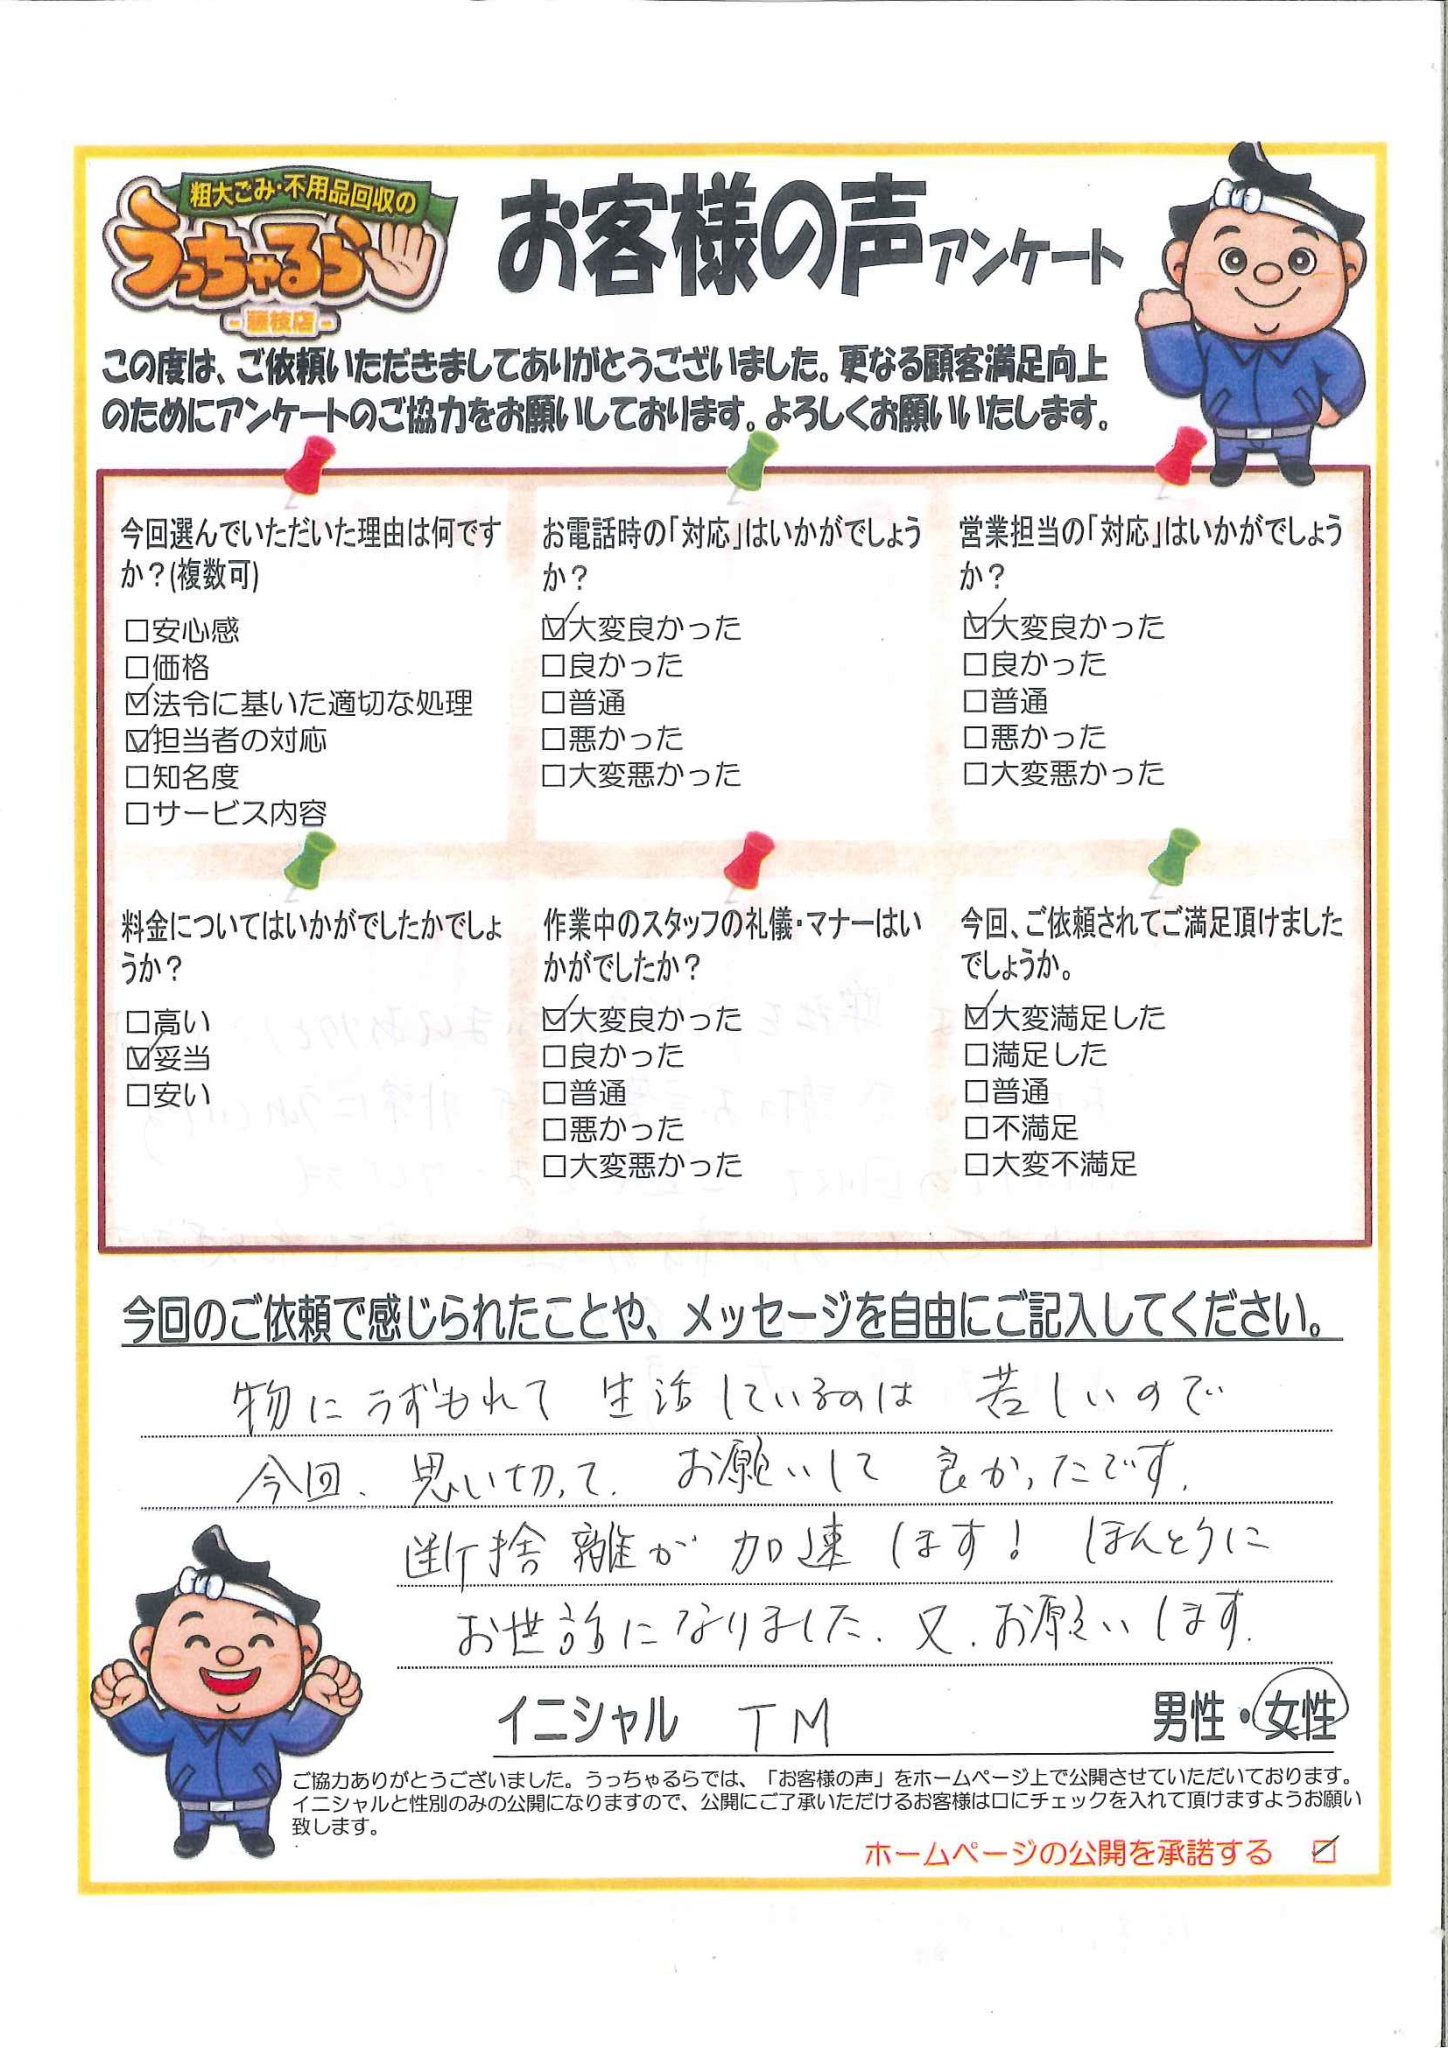 粗大ごみ・不用品回収の
うっちゃるら
- 藤枝店 -
お客様の声アンケート
この度は、ご依頼いただきましてありがとうございました。更なる顧客満足向上
のためにアンケートのご協力をお願いしております。よろしくお願いいたします。
今回選んでいただいた理由は何です
か？(複数可)
☐安心感
☐価格
☑法令に基いた適切な処理
☑担当者の対応
☐知名度
☐サービス内容
お電話時の「対応」はいかがでしょう
か？
☑大変良かった
☐良かった
☐普通
☐悪かった
☐大変悪かった
営業担当の「対応」はいかがでしょう
か？
☑大変良かった
☐良かった
☐普通
☐悪かった
☐大変悪かった
料金についてはいかがでしたかでしょ
うか？
☐高い
☑妥当
☐安い
作業中のスタッフの礼儀・マナーはい
かがでしたか？
☑大変良かった
☐良かった
☐普通
☐悪かった
☐大変悪かった
今回、ご依頼されてご満足頂けました
でしょうか。
☑大変満足した
☐満足した
☐普通
☐不満足
☐大変不満足
今回のご依頼で感じられたことや、メッセージを自由にご記入してください。
物にうずもれて 生活しているのは 苦しいので
今回、思い切って、お願いして 良かったです。
断捨離が 加速します！ ほんとうに
お世話になりました。又、お願いします。
イニシャル TM 男性・女性
ご協力ありがとうございました。うっちゃるらでは、「お客様の声」をホームページ上で公開させていただいております。
イニシャルと性別のみの公開になりますので、公開にご了承いただけるお客様は口にチェックを入れて頂けますようお願い
致します。
ホームページの公開を承諾する ☑